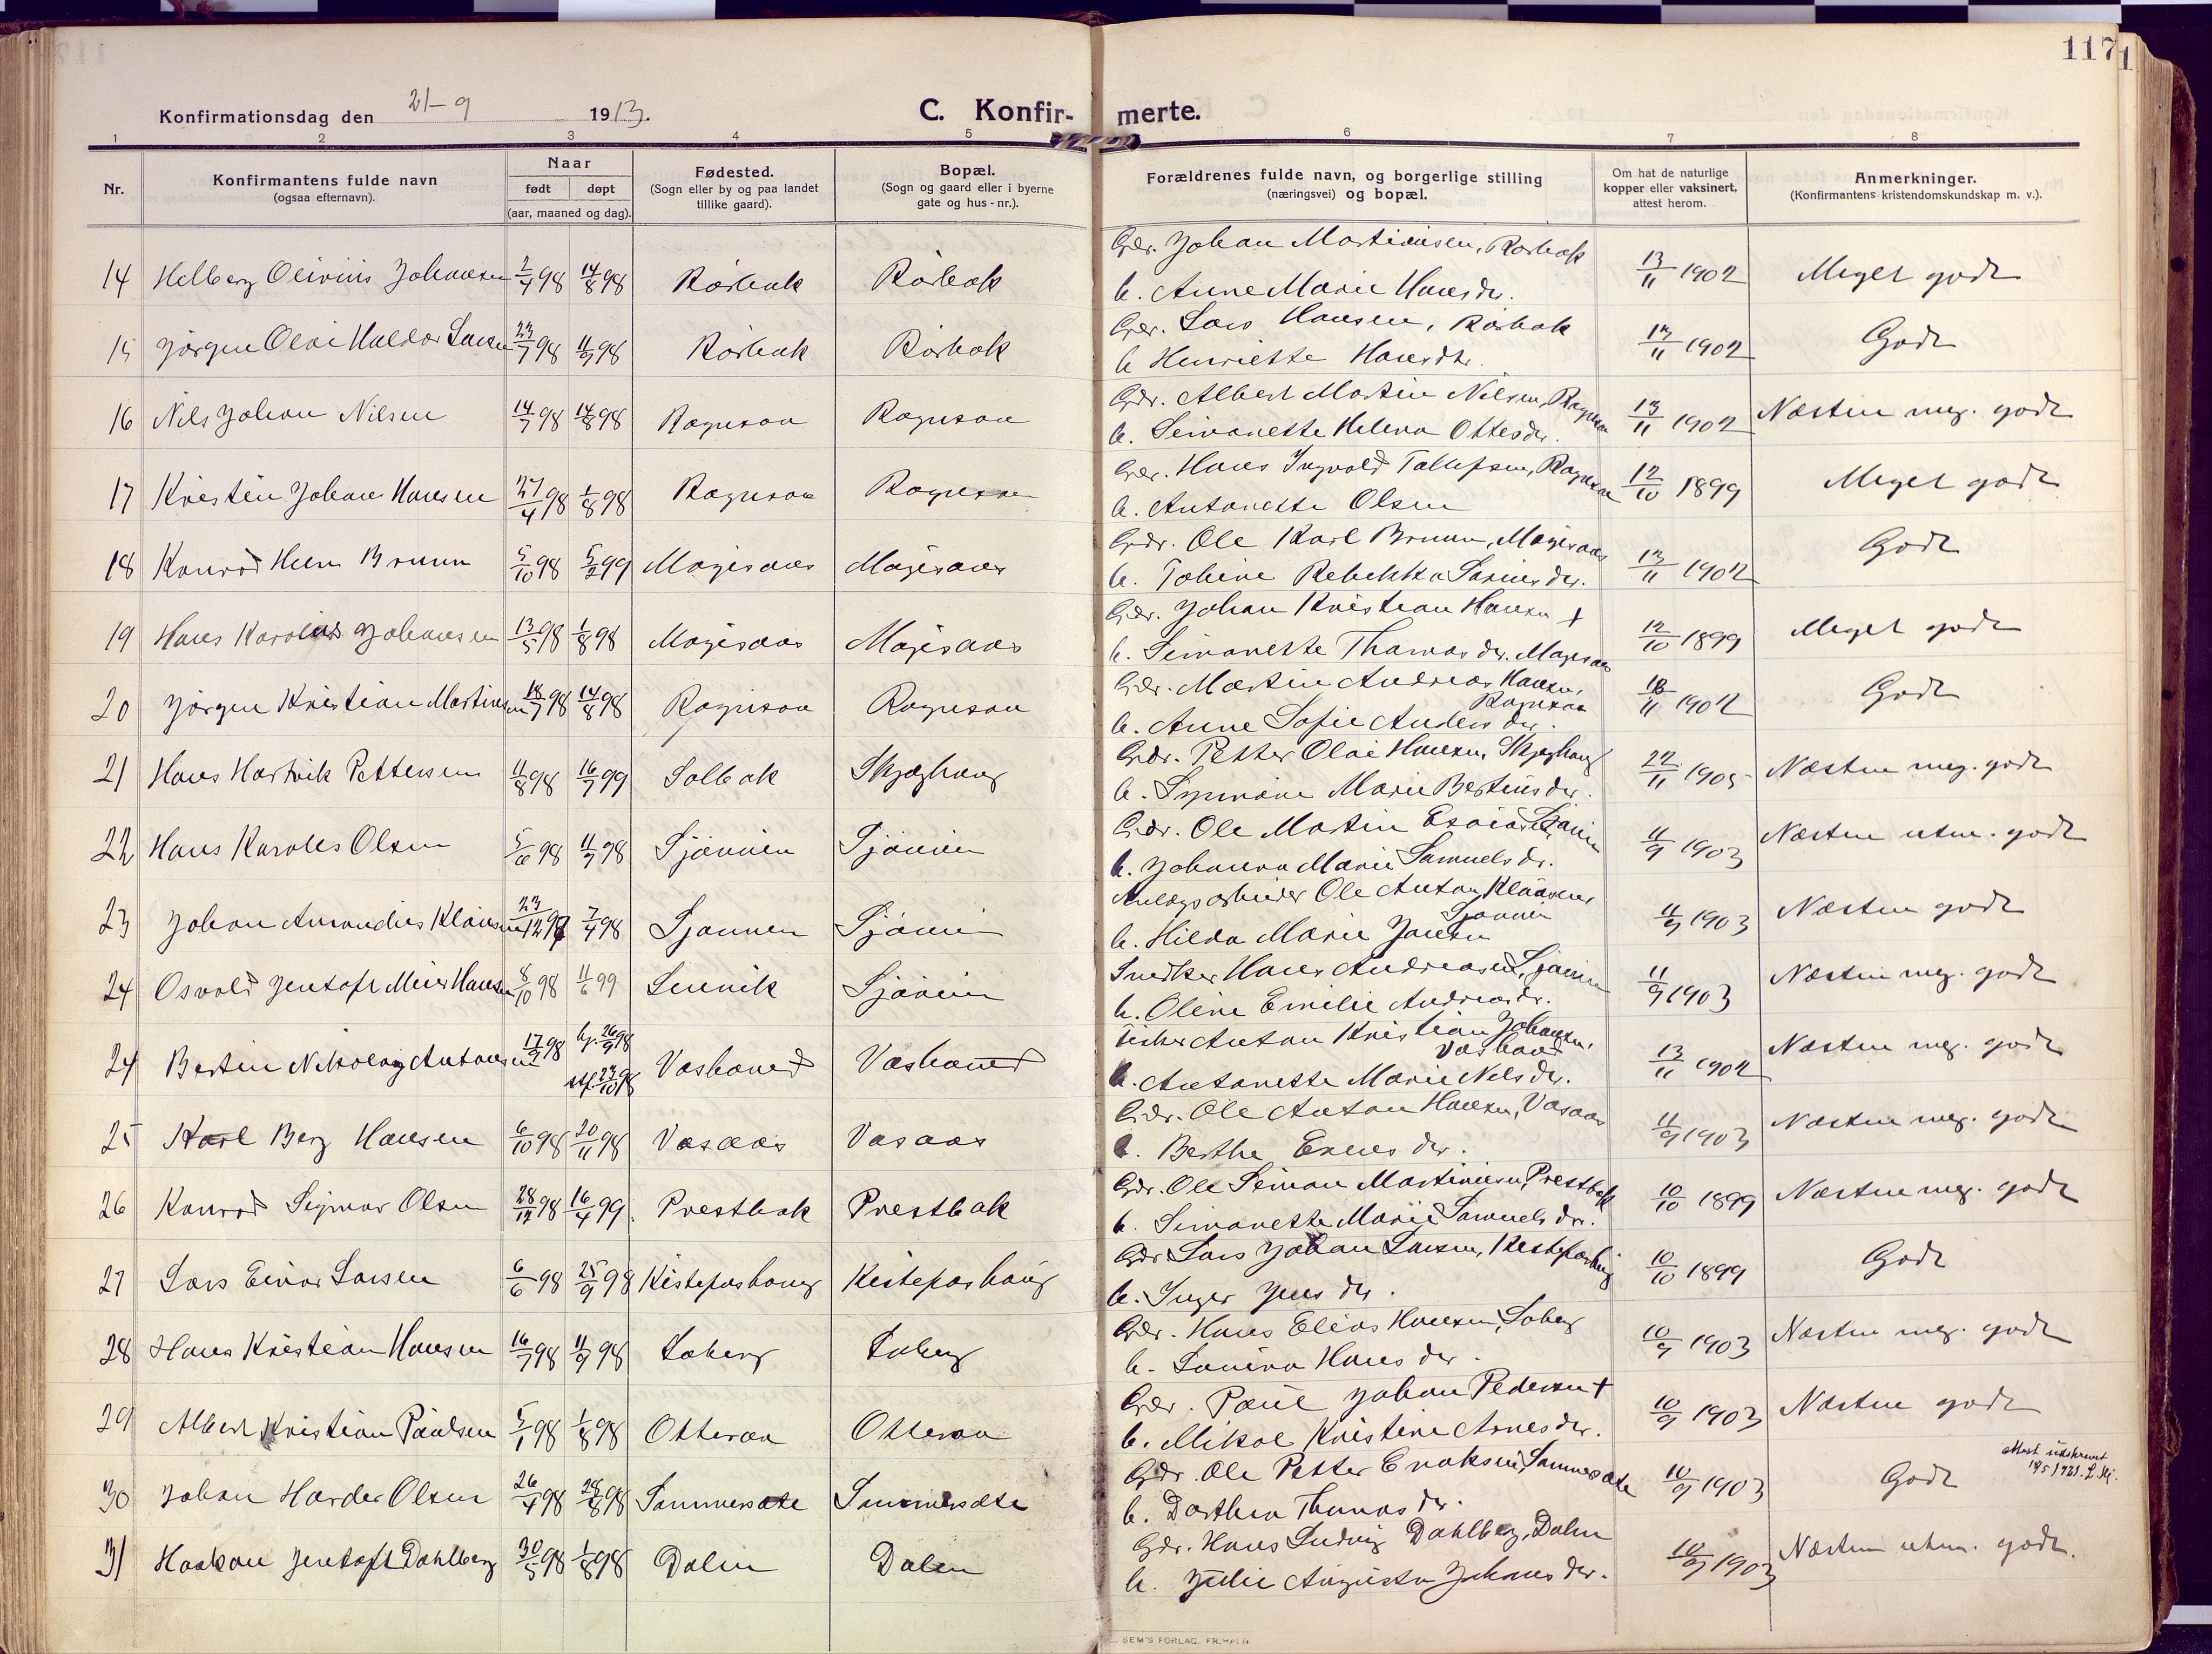 117
Konfirmationsdag den 21-9 1913.
C. Konfir- merte.
1 2 3 4 5 6 7 8
Nr.
Konfirmantens fulde navn
(ogsaa efternavn).
Naar
født døpt
(aar, maaned og dag).
Fødested.
(Sogn eller by og paa landet
tillike gaard).
Bopæl.
(Sogn og gaard eller i byerne
gate og hus-nr.).
Forældrenes fulde navn, og borgerlige stilling
(næringsvei) og bopæl.
Om hat de naturlige
kopper eller vaksinert,
attest herom.
Anmerkninger.
(Konfirmantens kristendomskundskap m. v.).
14 Helberg Olivius Johansen 2/7 98 14/8 98 Rørbak Rørbak Gdr. Johan Martinusen, Rørbak 13/11 1902 Meget godt
h. Anne Marie Hansdr.
15 Jørgen Olai Haldor Larsen 23/7 98 11/9 98 Rørbak Rørbak Gdr. Lars Hansen, Rørbak 13/11 1902 Godt
h Henriette Hansdtr.
16 Nils Johan Nilsen 14/7 98 14/8 98 Gdr. Albert Martin Nilsen, 13/11 1902 Næsten meg. godt
h. Simonette Helena Ottesdr.
17 Kristin Johans Hansen 27/4 98 1/8 98 Gdr. Hans Ingvald Tollefsen, 12/10 1899 Meget godt
h. Antonette Olsen
18 Konrad Brunn 5/10 98 5/2 99 Møgesaas Møgesaas Gdr. Ole Karl Brunn, Møgesaas 13/11 1902 Godt
h. Tobine Rebekka dr.
19 Hans Karolius Johansen 13/5 98 1/8 98 Møgesaas Møgesaas Gdr. Johan Kristian Hansen † 12/10 1899 Meget godt
h. Simonette Thomasdr. Møgesaas
20 Jørgen Kristian Martinsen 18/7 98 14/8 98 Gdr. Martin Andreas Hansen, 13/11 1902 Godt
h. Anne Sofie Andersdr.
21 Hans Hartvik Pettersen 11/8 98 16/7 99 Solbak Skjæghaug Gdr. Petter Olai Hansen, Skjæghaug 22/11 1905 Næsten meg. godt
h. Marie Bertinsdr.
22 Hans Karoles Olsen 5/6 98 11/9 98 Sjøanien Sjøanien Gdr. Ole Martin Esaiassen, 11/9 1903 Næsten utm. godt
h. Johanna Marie Samuelsdr.
23 Johan Amandus Klausen 23/12 97 7/4 98 Anlægsarbeider Ole Anton Klausen, 11/9 1903 Næsten godt
h. Hilda Marie Jensen
24 Osvald Jentoft Meier Hansen 8/10 98 11/6 99 Snedker Hans Andreasen, 11/9 1903 Næsten meg. godt
h. Oline Emilie Andreasdr.
24 Bertin Nikolay Antonsen 17/9 98 hj. 26/9 98 Vashaued Vashaued Fisker Anton Kristian Johansen, 13/11 1902 Næsten meg. godt
stf. 23/10 98 h. Antonette Marie Nilsdr.
25 Karl Berg Hansen 6/10 98 20/11 98 Vasaas Vasaas Gdr. Ole Anton Hansen, Vasaas 11/9 1903 Næsten meg. godt
h. Berthe Enesdr.
26 Konrad Sigmar Olsen 28/12 98 16/4 99. Prestbak Prestbak Gdr. Ole Simon Martinusen, Prestbak 10/10 1899 Næsten meg. godt
h. Simonette Marie Samuelsdr.
27 Lars Einar Larsen 6/6 98 25/9 98 Kisteforhaug Kisteforhaug Gdr Lars Johan Larsen, Kisteforhaug 10/10 1899 Godt
h. Inger Jensdr.
28 Hans Kristian Hansen 16/7 98 11/9 98 Soberg Soberg Gdr. Hans Elias Hansen, Soberg 10/9 1903 Næsten meg. godt
h. Hansdr.
29 Albert Kristian Paulsen 5/1 98 1/8 98 Otteraa Otteraa Gdr. Paul Johan Pedersen † 10/9 1903 Næsten godt
h. Mikal Kristine Arnesdr.
30 Johan Harder Olsen 26/4 98 28/8 98 Sommersæte Sommersæte Gdr. Ole Petter Eriksen, Sommersæte 10/9 1903 Godt
attest utskrevet
h. Dorthea Thomasdr.
31 Haakon Jentoft Dahlberg 30/5 98 1/8 98 Dalen Dalen Gdr. Hans Ludvig Dahlberg, Dalen 10/9 1903 Næsten utm. godt.
h. Julie Augusta Johansdr.
SEM'S FORLAG, FR.HALD.